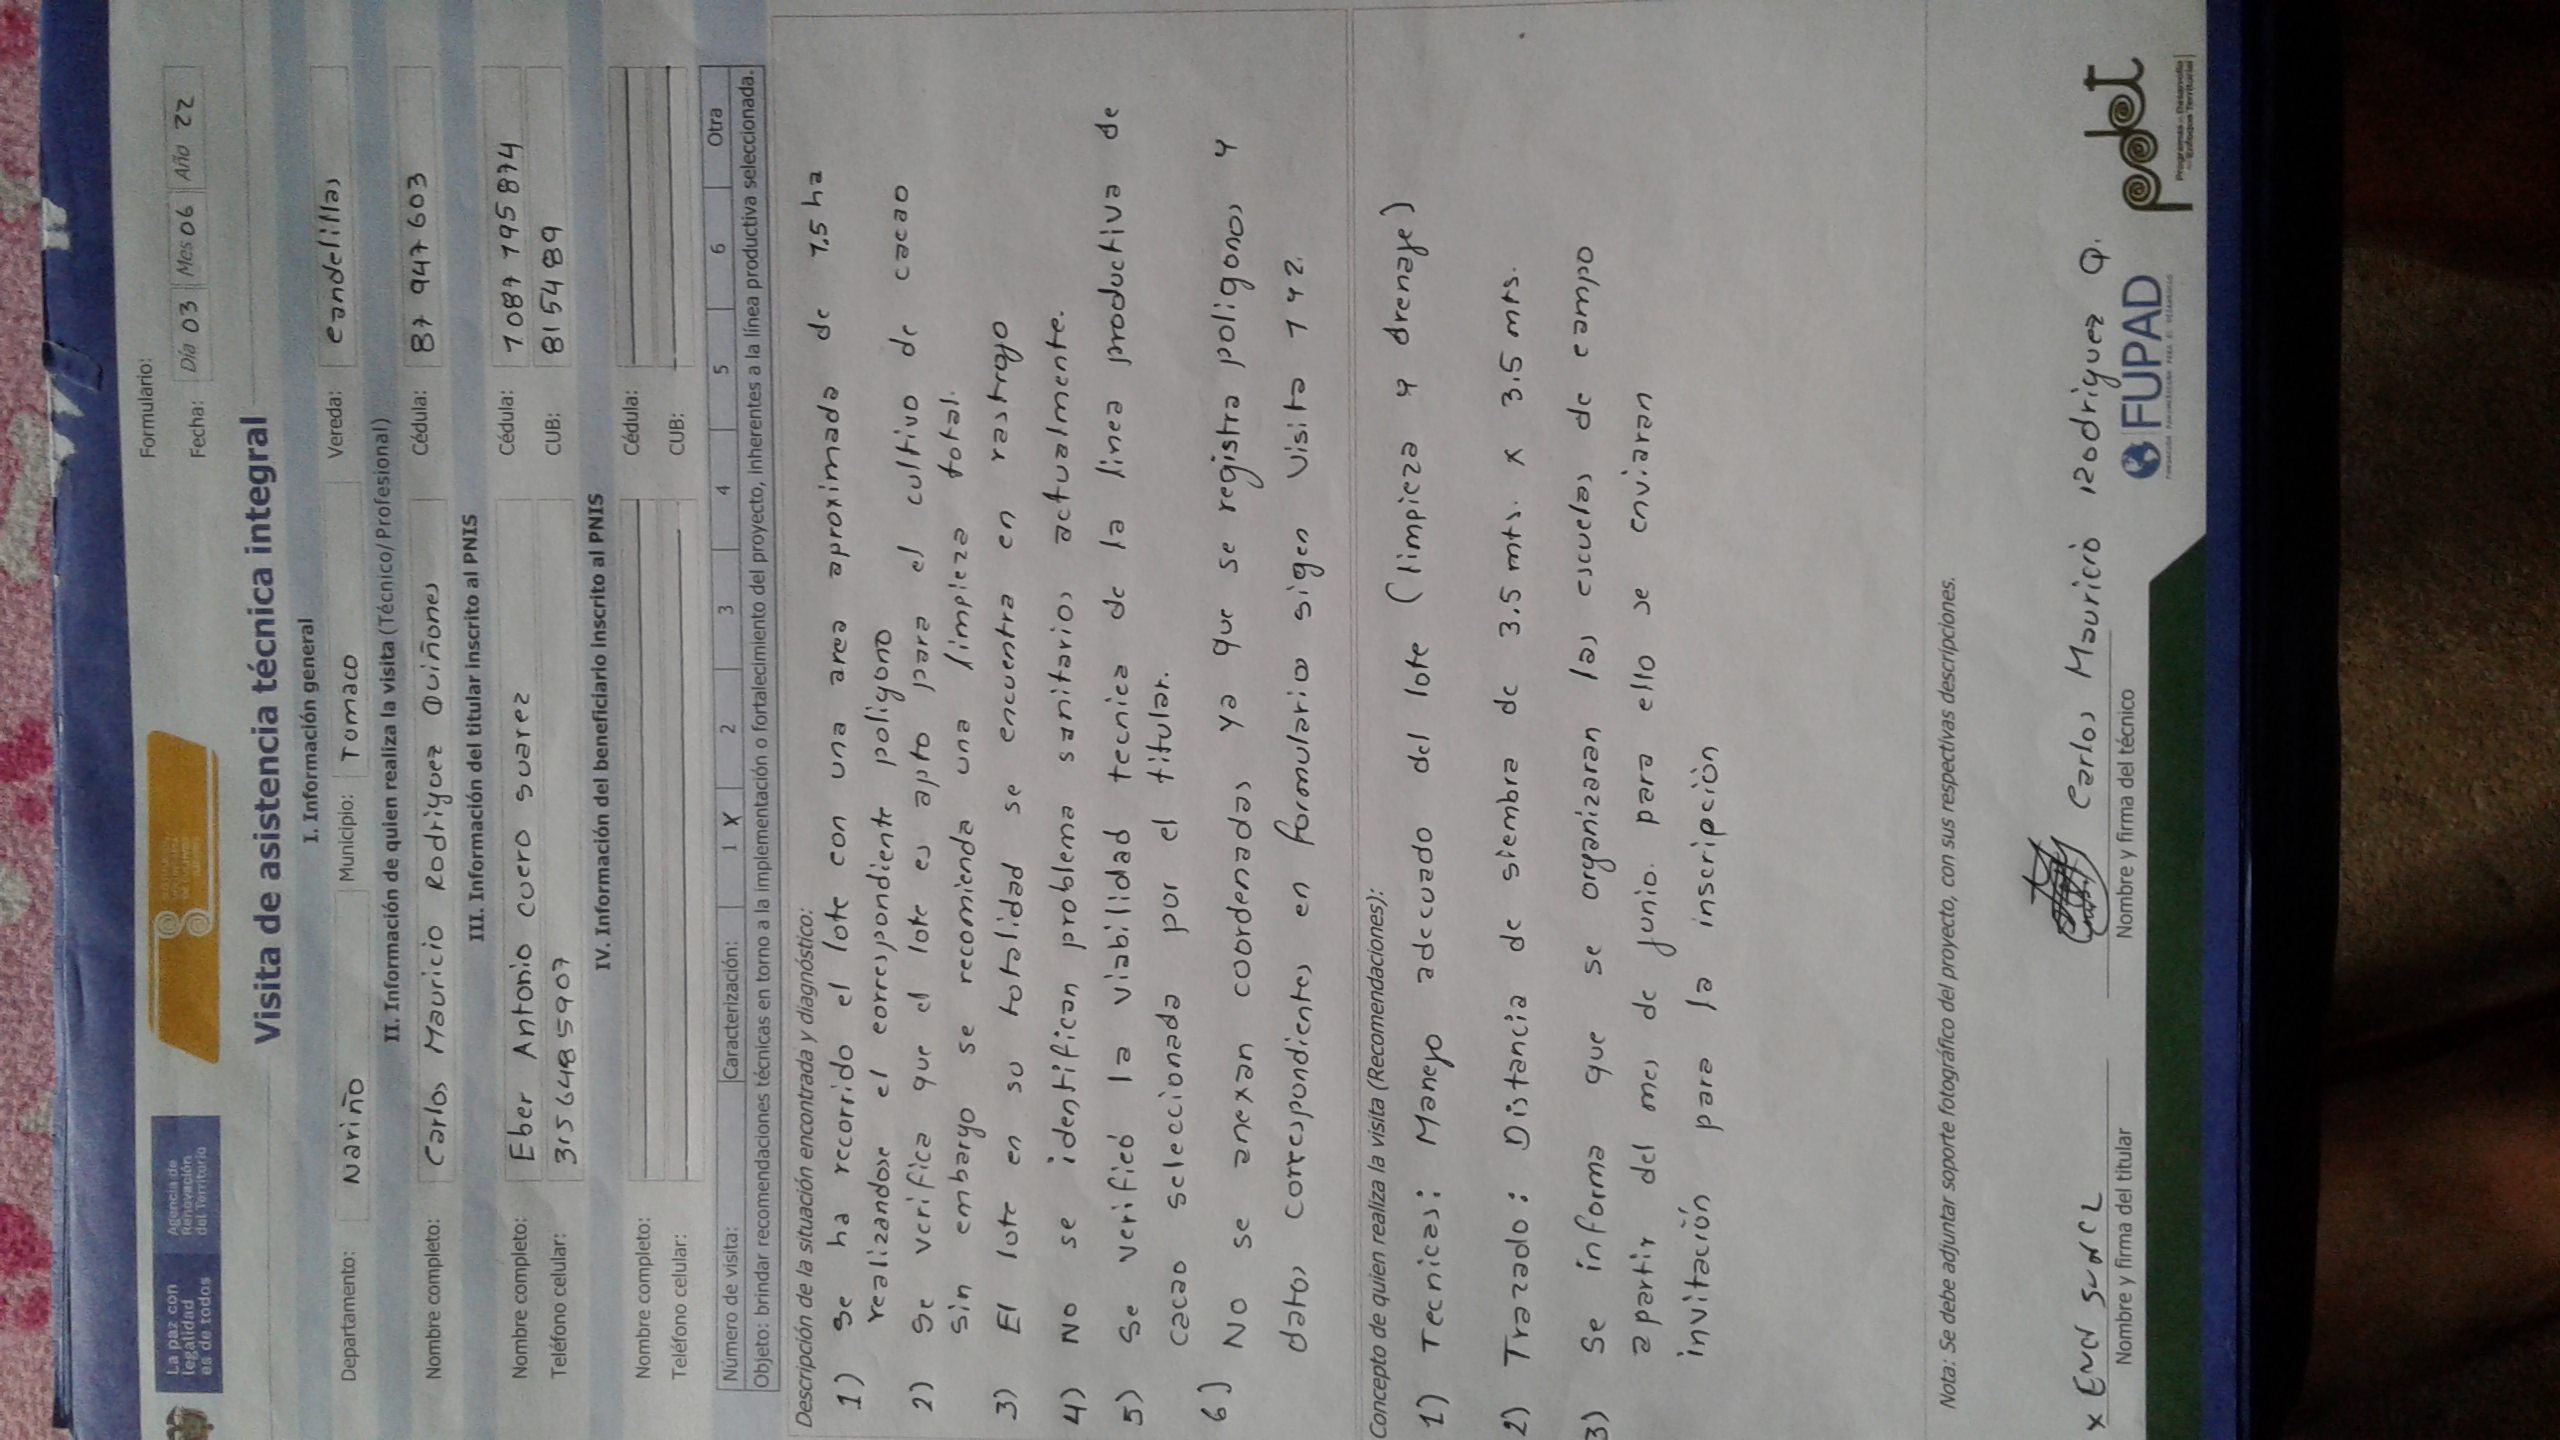 La paz con
legalidad
es de todos
Agencia de
Renovación
del Territorio
Formulario:
Fecha: Día 03 Mes 06 Año 22
Visita de asistencia técnica integral
I. Información general
Departamento: Nariño Municipio: Tumaco Vereda: candelillas
II. Información de quien realiza la visita (Técnico/Profesional)
Nombre completo: Carlos Mauricio Rodriguez Quiñones Cédula: 87 947 603
III. Información del titular inscrito al PNIS
Nombre completo: Eber Antonio cuero suarez Cédula: 1087 195 874
Teléfono celular: 3156485907 CUB: 8154 89
IV. Información del beneficiario inscrito al PNIS
Nombre completo: Cédula:
Teléfono celular: CUB:
Número de visita: Caracterización: 1 X 2 3 4 5 6 Otra
Objeto: brindar recomendaciones técnicas en torno a la implementación o fortalecimiento del proyecto, inherentes a la línea productiva seleccionada.
Descripción de la situación encontrada y diagnóstico:
1) Se ha recorrido el lote con una area aproximada de 1.5 ha
realizandose el correspondiente poligono
2) Se verifica que el lote es apto para el cultivo de cacao
sin embargo se recomienda una limpieza total.
3) El lote en su totalidad se encuentra en rastrojo
4) No se identifican problema sanitarios actualmente.
5) Se verificó la viabilidad tecnica de la linea productiva de
cacao seleccionada por el titular.
6) No se anexan coordenadas ya que se registra poligonos y
datos correspondientes en formularios sigen visita 1 y 2.
Concepto de quien realiza la visita (Recomendaciones):
1) Tecnicas: Manejo adecuado del lote (limpieza y drenaje)
2) Trazado: Distancia de siembra de 3.5 mts. x 3.5 mts.
3) Se informa que se organizaran las escuelas de campo
apartir del mes de junio. para ello se enviaran
invitación para la inscripción
Nota: Se debe adjuntar soporte fotográfico del proyecto, con sus respectivas descripciones.
Carlos Mauricio Rodriguez Q.
Nombre y firma del titular
Nombre y firma del técnico
FUPAD
pdet
Programas de Desarrollo
con Enfoque Territorial